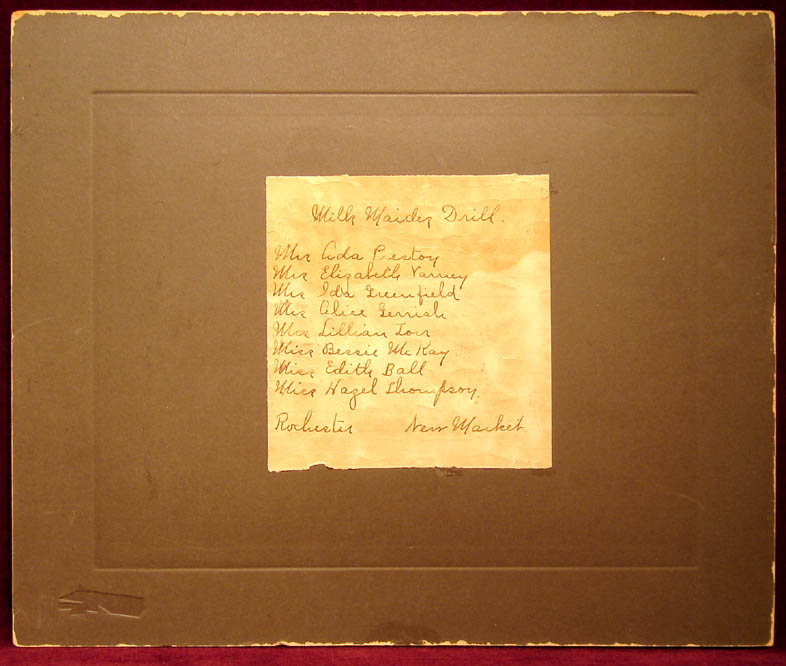 Milk Maides Drill.
Mrs Ada Beston
Mrs Elizabeth Varney
Mrs Ida Greenfield
Mrs Alice Gerrish
Mrs Lillian Torr
Miss Bessie McKay
Miss Edith Ball
Miss Hazel Thompson
Rochester New Market